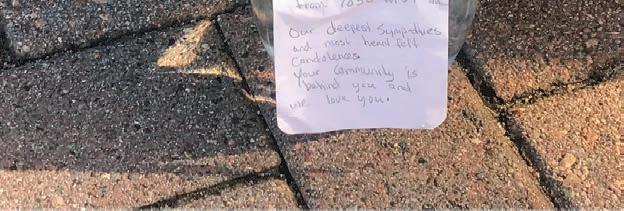 from
Our deepest Sympathies
and most heart felt
Condolences.
Your Community is
behind you and
we love you.